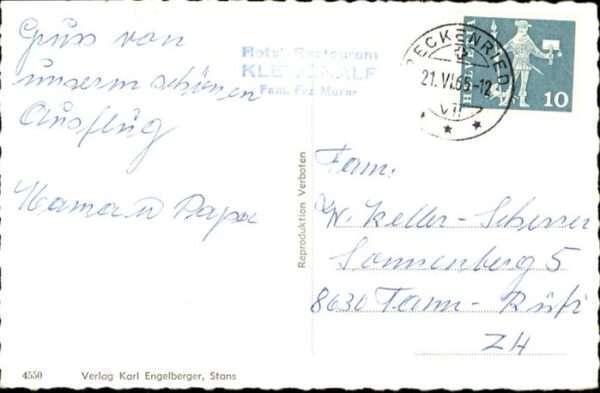 Gruss von
unserm schönen
Ausflug
Mama u Papa
Hotel-Restaurant
KLEWENALP
Fam. Frz Murer
BECKENRIED
21.VI.65-12
HELVETIA
10
Reproduktion Verboten
Fam.
W. Keller-Scherrer
Sonnenberg 5
8630 Tann-Rüti
ZH
4550 Verlag Karl Engelberger, Stans